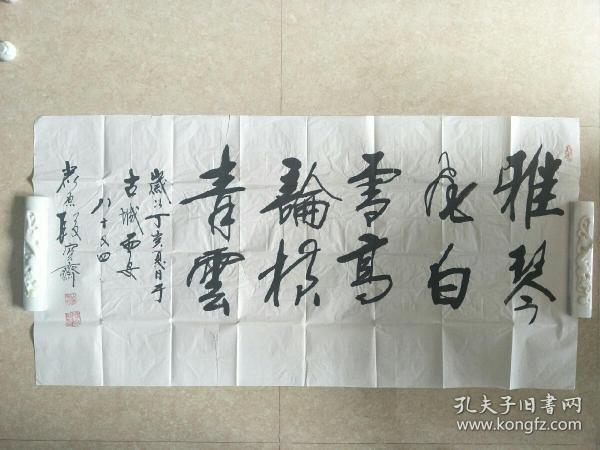 雅琴
飛白
雪高
論橫
青雲
歲次丁亥夏日于
古城西安
八十又四
孔夫子旧书网
www.kongfz.com